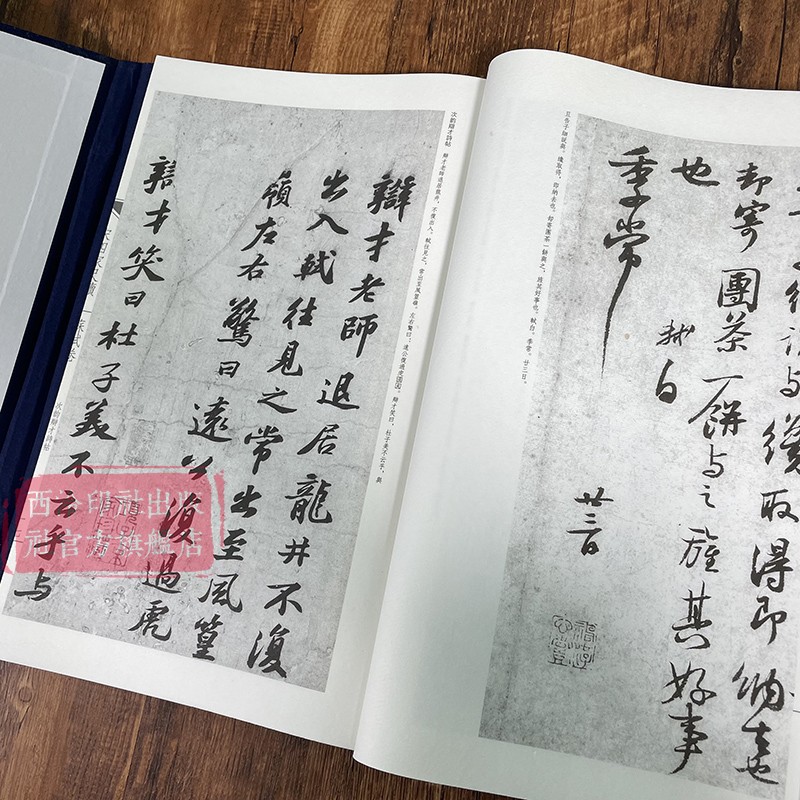 細說与纔取得即納去也
却寄團茶一餅与之旌其好事
也
軾白
季常
廿三日
且告子細說與，纔取得，即納去也。却寄團茶一餅與之，旌其好事也。軾白。季常。廿三日。
次韵辯才詩帖 辯才老師退居龍井，不復出入。軾往見之，常出至風篁嶺。左右驚曰：遠公復過虎
辯才笑曰：杜子美不云乎，與
辯才老師退居龍井不復
出入軾往見之常出至風篁
嶺左右驚曰遠公復過虎
辯才笑曰杜子美不云乎与
次韵辯才詩帖
西泠印社出版
社官方旗舰店